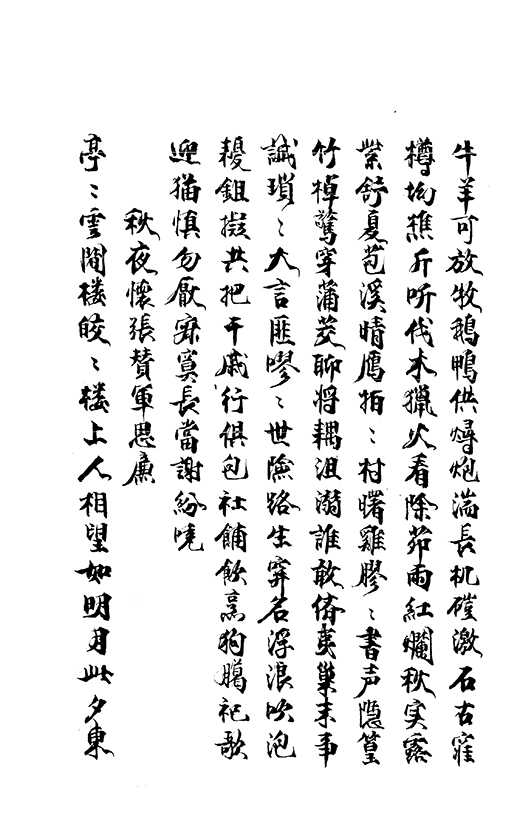 牛羊可放牧鵝鴨供燖炮湍長机磑激石古窪
樽坳樵斤听伐木獵火看除茆雨紅爛秋实露
紫舒夏苞溪晴鴈拍〻村曙雞膠〻書声隱篁
竹棹驚穿蒲茭聊将耦沮溺誰敢倚夷巢耒事
誠瑣〻大言匪嘐〻世險路生穽名浮浪吹泡
耰鉏擬共把干戚行俱包社餔飲烹狗臈祀歌
迎猫慎勿厭寂寞長當謝紛呶
秋夜懷張賛軍思廉
亭〻雲間楼皎〻楼上人相望如明月此夕東